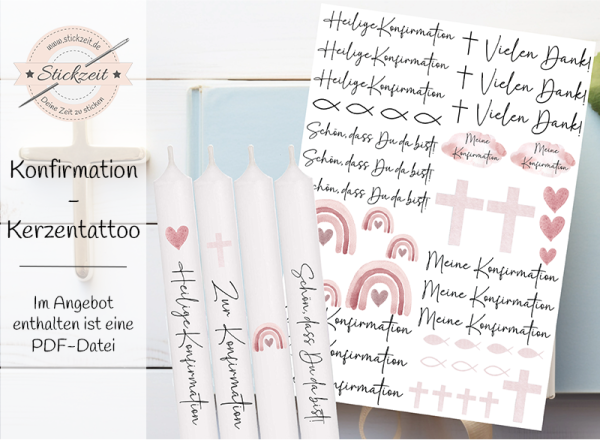 www.stickzeit.de
Stickzeit
Deine Zeit zu sticken
Konfirmation
-
Kerzentattoo
Im Angebot
enthalten ist eine
PDF-Datei
Heilige Konfirmation
Zur Konfirmation
Schön, dass Du da bist!
Heilige Konfirmation
Heilige Konfirmation
Heilige Konfirmation
Vielen Dank!
Vielen Dank!
Vielen Dank!
Schön, dass Du da bist!
Schön, dass Du da bist!
chön, dass Du da bist!
Meine
Konfirmation
Meine
Konfirmation
Meine Konfirmation
Meine Konfirmation
Meine Konfirmation
Konfirmation
onfirmation
onfirmation